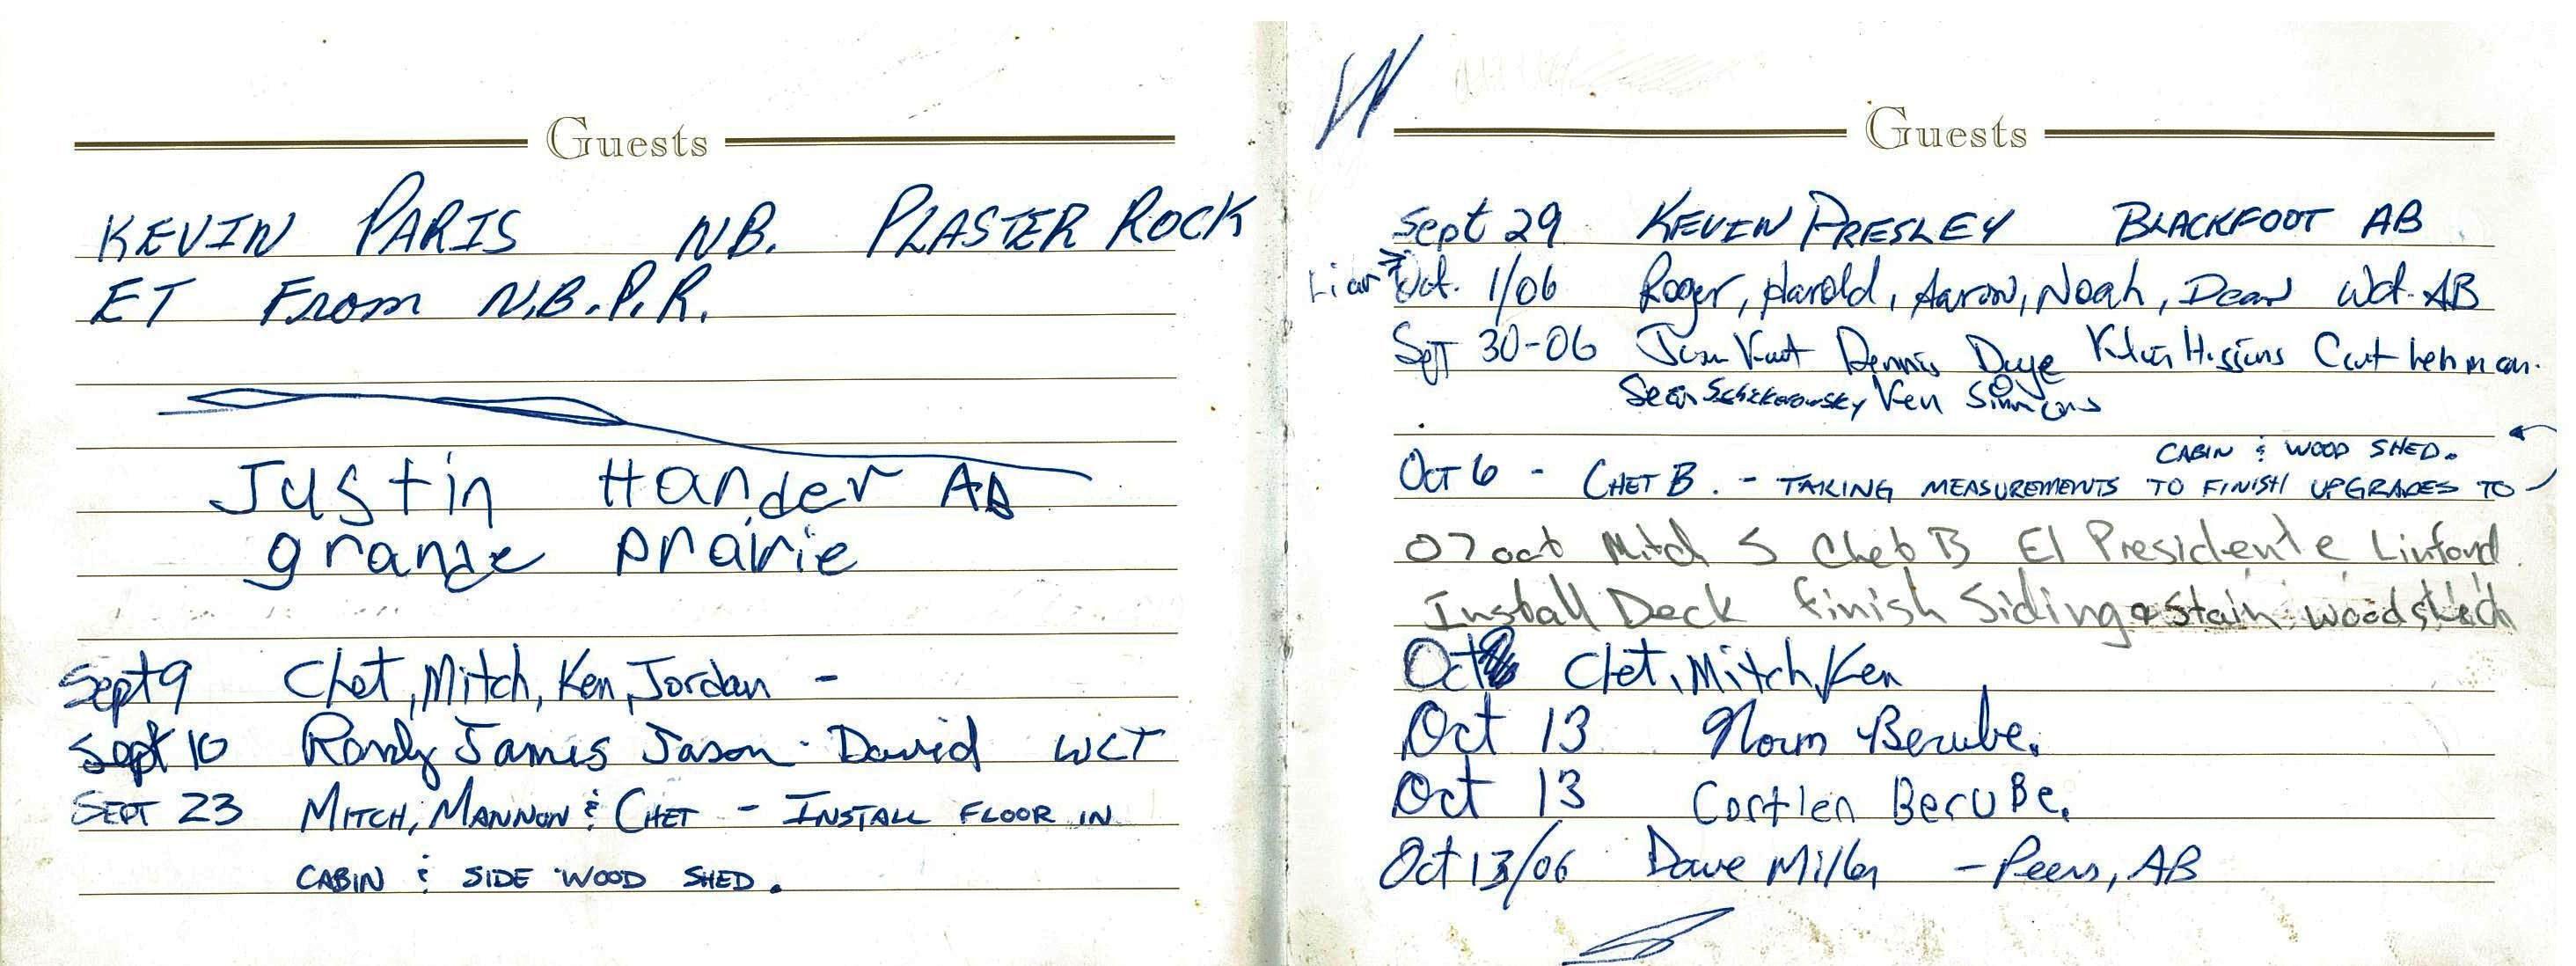 Guests
KEVIN PARIS NB. PLASTER ROCK
ET From N.B.P.R.
Justin Hander AB
grande prairie
Sept 9 Chet, Mitch, Ken, Jordan -
Sept 10 Randy James Jason David WCT
SEPT 23 MITCH, MANNON & CHET - INSTALL FLOOR IN
CABIN & SIDE WOOD SHED.
Guests
Sept 29 KEVIN PRESLEY BLACKFOOT AB
Liar Oct. 1/06 Roger, Harold, Aaron, Noah, Dean Wct. AB
Sept 30-06 Dennis Duye Higgins Curt Lehman.
Sean Ken Simmons
CABIN & WOOD SHED.
OCT 6 - CHET B. - TAKING MEASUREMENTS TO FINISH UPGRADES TO
07 oct Mitch S Chet B El Presidente Linford
Install Deck finish Siding & Stain woodshed
Oct Chet, Mitch, Ken
Oct 13 Norm Berube.
Oct 13 Cortlen BeruBe.
Oct 13/06 Dave Miller - Peers, AB